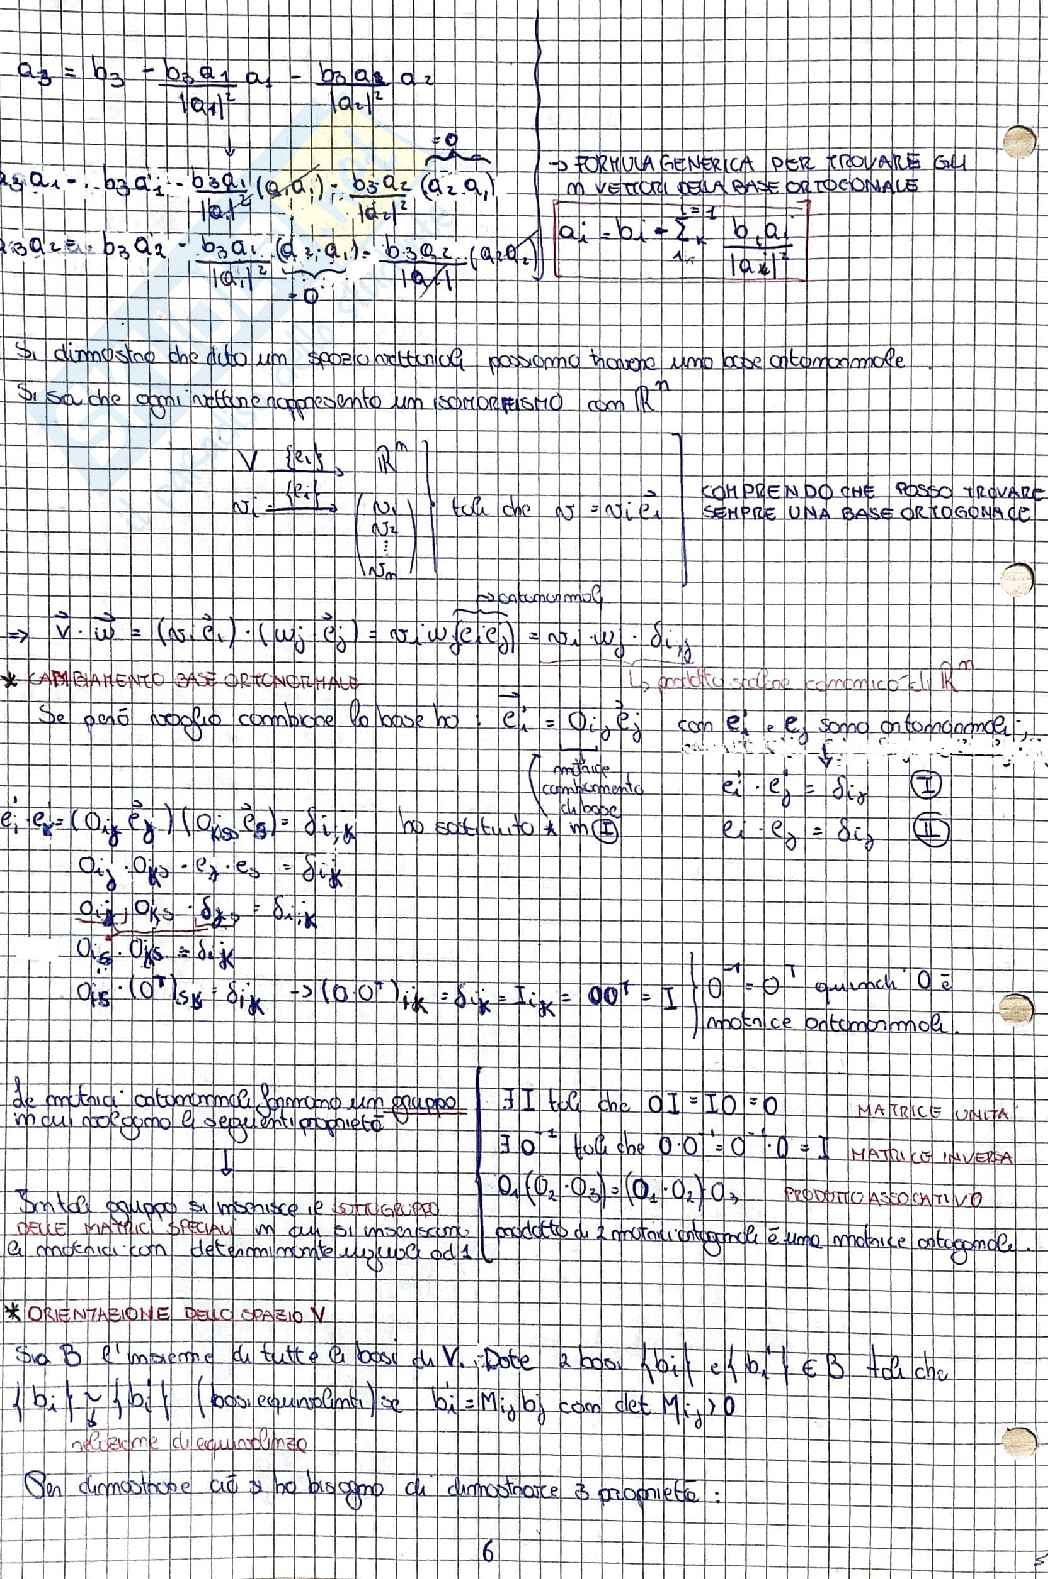 a₃ = b₃ - b₃a₁/|a₁|² a₁ - b₃a₂/|a₂|² a₂
= 0
a₁ = b₃a₁ - b₃a₁/|a₁|² (a₁a₁) - b₃a₂/|a₂|² (a₂a₁)
a₂ = b₃a₂ - b₃a₁/|a₁|² (a₂·a₁) - b₃a₂ (a₂a₂)
= 0
→ FORMULA GENERICA PER TROVARE GLI
m VETTORI DELLA BASE ORTOGONALE
Si dimostra che dato un spazio vettoriale possiamo trovare una base ortonormale
Si sa che ogni vettore rappresenta un ISOMORFISMO con ℝⁿ
V {ei}→ ℝⁿ
vi {ei}→ (v₁ v₂ ⋮ vn) tali che v = vi e⃗i
COMPRENDO CHE POSSO TROVARE
SEMPRE UNA BASE ORTOGONALE
→ ortonormali
⇒ v⃗ · w⃗ = (vi e⃗i) · (wj e⃗j) = vi wj (ei ej) = vi · wj · δi,j
↳ prodotto scalare canonico di ℝⁿ
* CAMBIAMENTO BASE ORTONORMALE
Se però voglio cambiare la base ho : e⃗i' = Oij e⃗j con ei' e ej sono ortonormali ;
matrice
cambiamento
di base
ei' · ej' = δij (I)
ei · ej = δij (II)
ei' · ek' = (Oij e⃗j) (Oks e⃗s) = δi,k ho sostituito * in (I)
Oij · Oks · ej · es = δik
Oij · Oks · δjs = δik
Ois · Oks = δik
Ois · (Oᵀ)sk = δik → (O·Oᵀ)ik = δik = Iik = OOᵀ = I
O⁻¹ = Oᵀ quindi O è
matrice ortonormale.
Le matrici ortonormali formano un gruppo
in cui valgono le seguenti proprietà
↓
In tale gruppo si inserisce il SOTTOGRUPPO
DELLE MATRICI SPECIALI in cui si inseriscono
le matrici con determinante uguale ad 1
∃ I tali che OI = IO = O MATRICE UNITA'
∃ O⁻¹ tali che O·O⁻¹ = O⁻¹·O = I MATRICE INVERSA
O₁(O₂·O₃) = (O₁·O₂)O₃ PRODOTTO ASSOCIATIVO
prodotto di 2 matrici ortogonali è una matrice ortogonale.
* ORIENTAZIONE DELLO SPAZIO V
Sia B l'insieme di tutte le basi di V. Date 2 basi {bi} e {bi'} ∈ B tali che
{bi} ~ {bi'} (basi equivalenti) se bi' = Mij bj con det Mij > 0
relazione di equivalenza
Per dimostrare ciò si ha bisogno di dimostrare 3 proprietà :
6